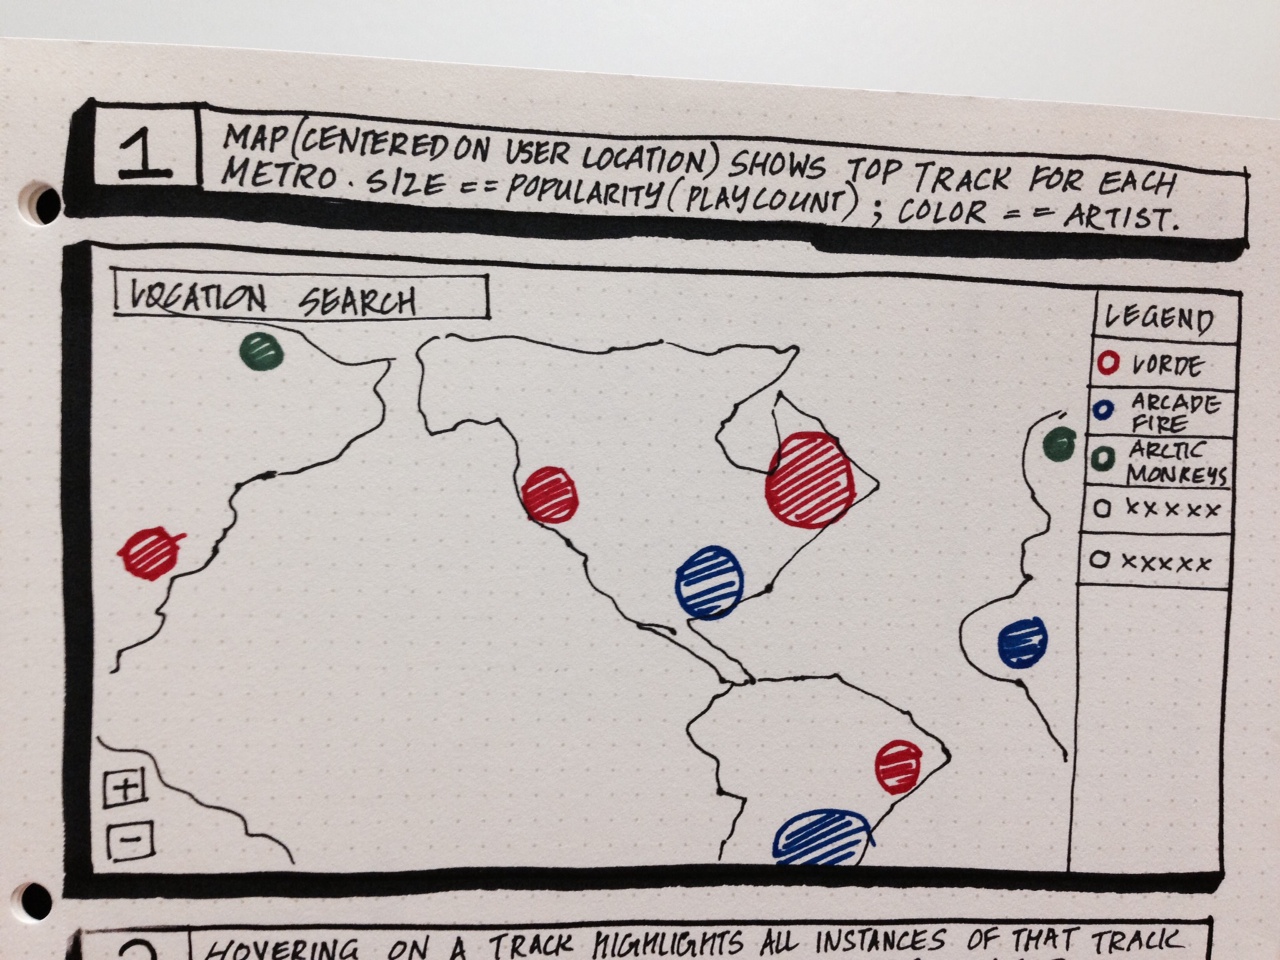 1
MAP (CENTERED ON USER LOCATION) SHOWS TOP TRACK FOR EACH
METRO. SIZE == POPULARITY (PLAYCOUNT) ; COLOR == ARTIST.
LOCATION SEARCH
LEGEND
LORDE
ARCADE
FIRE
ARCTIC
MONKEYS
XXXXX
XXXXX
+
-
2
HOVERING ON A TRACK HIGHLIGHTS ALL INSTANCES OF THAT TRACK